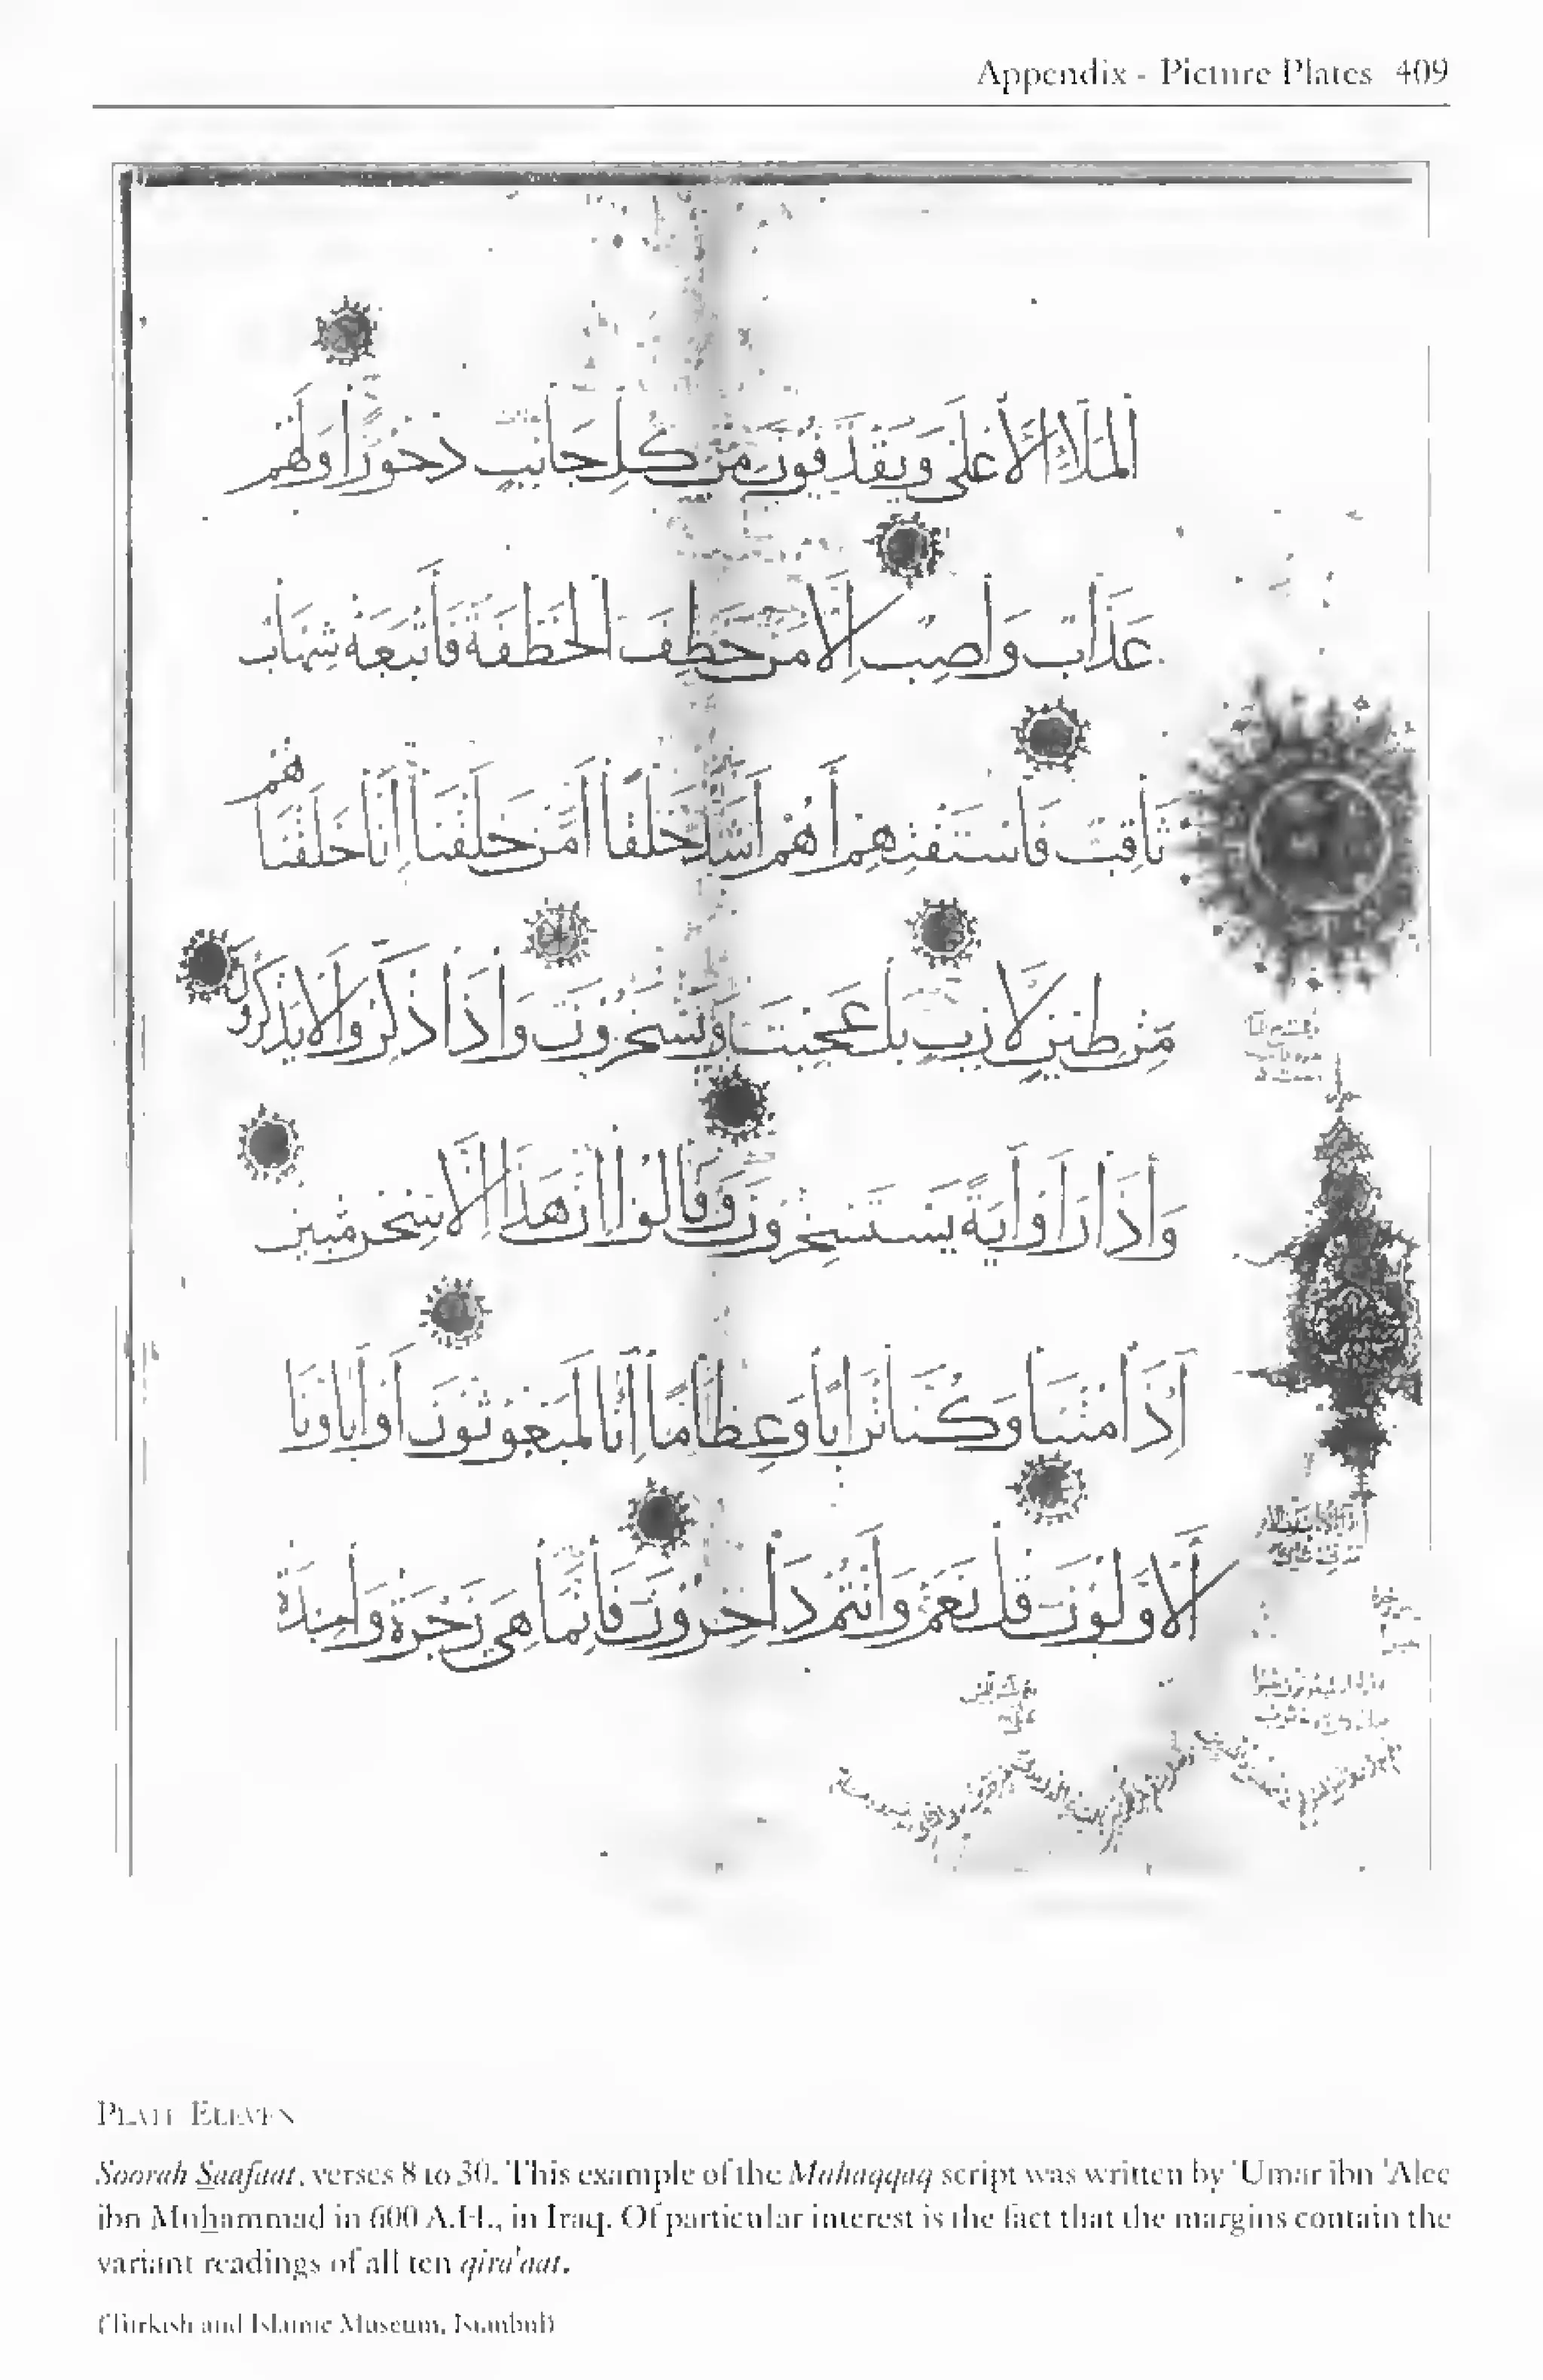 Appendix - Picture Plates 409
الملإ الأعلى ويقذفون من كل جانب دحورا ولهم
عذاب واصب إلا من خطف الخطفة فأتبعه شهاب
ثاقب فاستفتهم أهم أشد خلقا أم من خلقنا إنا خلقناهم
من طين لازب بل عجبت ويسخرون وإذا ذكروا لا يذكرون
وإذا رأوا آية يستسخرون وقالوا إن هذا إلا سحر مبين
أإذا متنا وكنا ترابا وعظاما أإنا لمبعوثون أو آباؤنا
الأولون قل نعم وأنتم داخرون فإنما هي زجرة واحدة
PLATE ELEVEN
Soorah Saafaat, verses 8 to 30. This example of the Muhaqqaq script was written by 'Umar ibn 'Alee
ibn Muhammad in 600 A.H., in Iraq. Of particular interest is the fact that the margins contain the
variant readings of all ten qira'aat.
(Turkish and Islamic Museum, Istanbul)